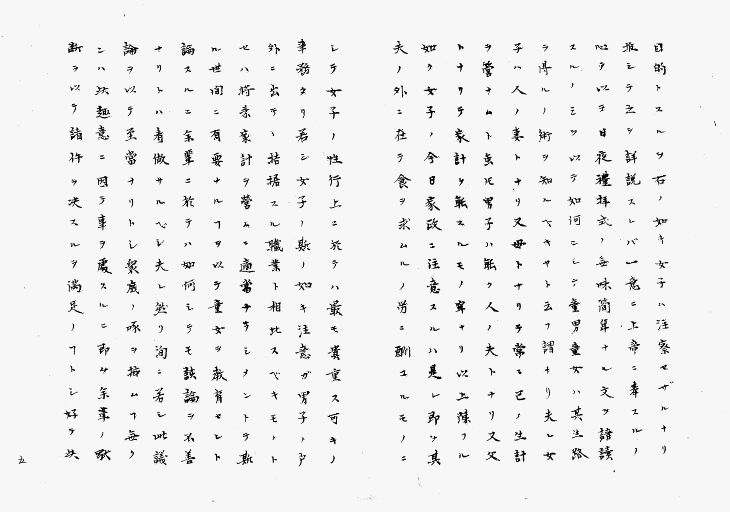 目的トスルヲ右ノ如キ女子ハ注察セザルナリ
推シテ之ヲ詳説スレバ一意ニ上帝ニ奉スルノ
心ヲ以テ日夜禮拝式ノ毎味簡単ナル文ヲ諳読
スルノミヲ以テ如何ニシテ童男童女ハ其生路
ヲ得ルノ術ヲ知ルベキヤト云フ謂ナリ夫レ女
子ハ人ノ妻トナリ又母トナリテ常ニ己ノ生計
ヲ營ナムト虽モ男子ハ能ク人ノ夫トナリ又父
トナリテ家計ヲ転スルモノ寡ナリ以上陳フル
如ク女子ノ今日家政ニ注意スルハ是レ即ツ其
夫ノ外ニ在テ食ヲ求ムルノ労ニ酬ユルモノニ
シテ女子ノ性行上ニ於テハ最モ貴重ス可キノ
事務タリ若シ女子ノ斯ノ如キ注意ガ男子ノ戸
外ニ出テヽ拮据スル職業ト相比スベキモノト
セハ将来家計ヲ營ムニ適當ナラシメントテ斯
ル世間ニ有要ナルヿヲ以テ童女ヲ教育セシト
論スルニ余輩ニ於テハ如何シテモ談論ヲ不善
ナリトハ看做サルベシ夫レ然リ洵ニ若シ此議
論ヲ以テ至當ナリトシ衆庶ノ喙ヲ挿ムヿ毎ク
ンハ此趣意ニ因テ事ヲ處スルニ即ケ余輩ノ獣
断ヲ以テ諸件ヲ决スルヲ満足ノヿトシ好テ决
五